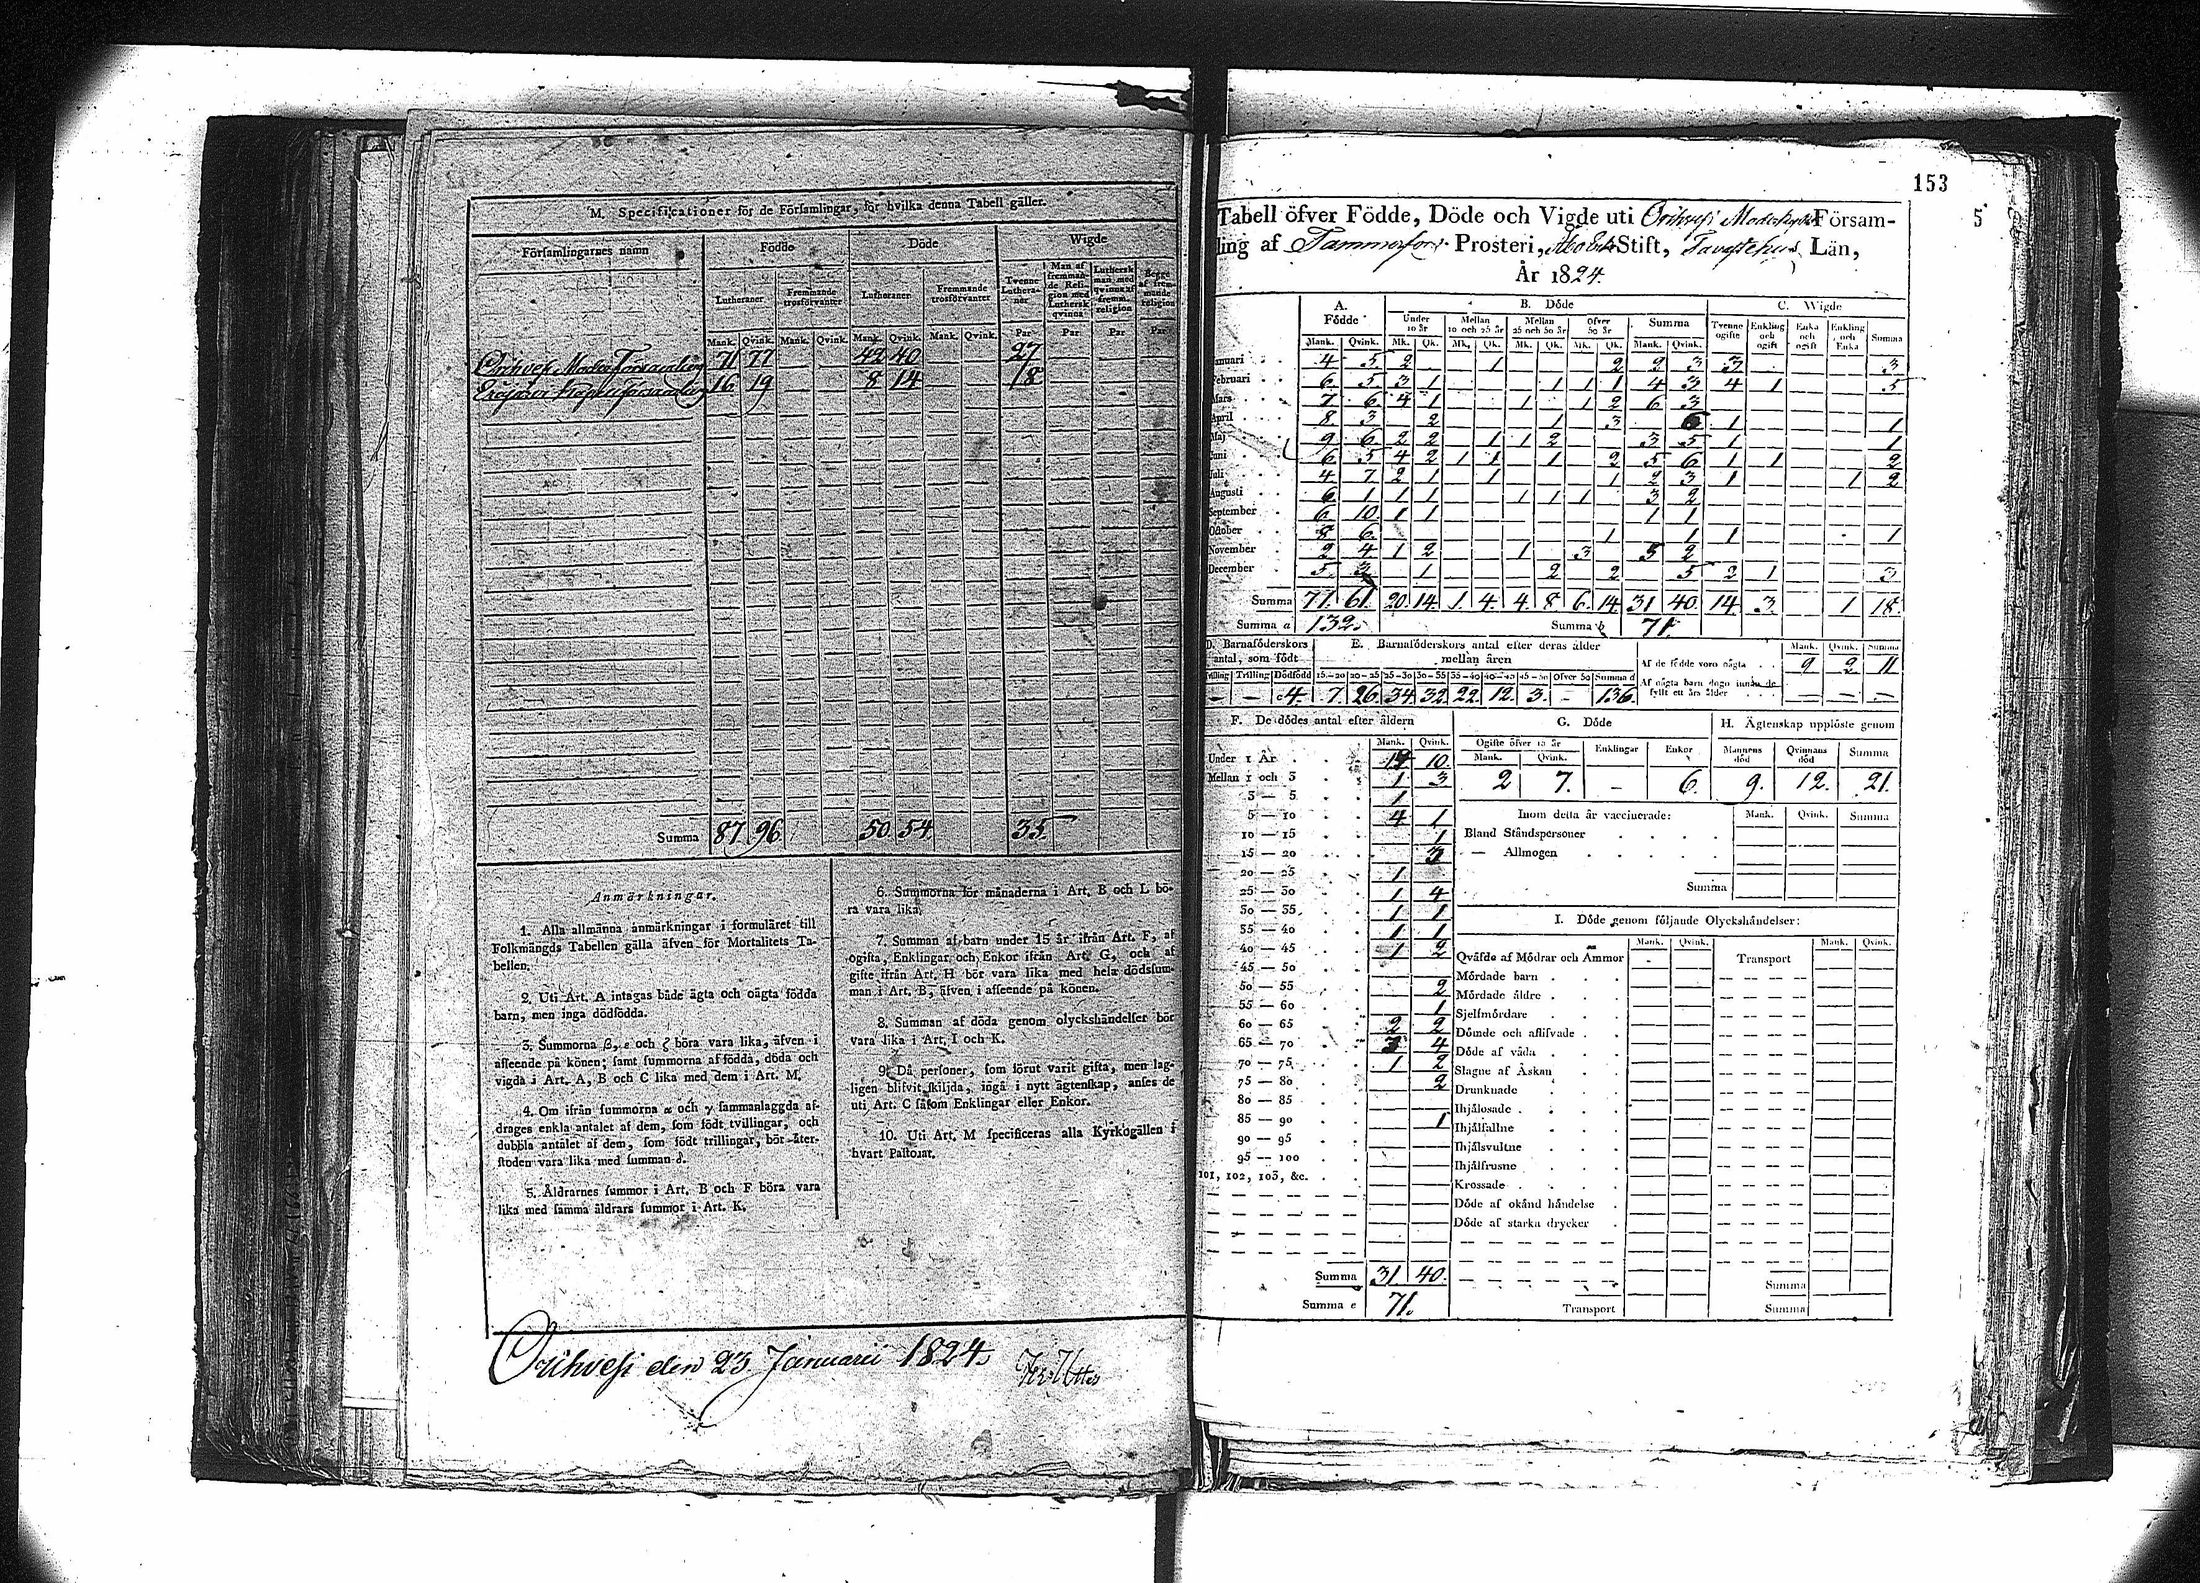 M. Specificationer för de Församlingar, för hvilka denna Tabell gäller.
Församlingarnes namn Födde Döde Wigde
Lutheraner Fremmande trosförvanter Lutheraner Fremmande trosförvanter Tvenne Lutheraner Man af fremmande Religion med Luthersk qvinna Luthersk man med qvinna af fremm. religion Begge af fremmande religion
Mank. Qvink. Mank. Qvink. Mank. Qvink. Mank. Qvink. Par Par Par Par
Orihvesi Moder Församling 71 77 42 40 27
Erajärvi Kapellförsamling 16 19 8 14 18
Summa 87 96 50 54 35
Anmärkningar.
1. Alla allmänna anmärkningar i formuläret till
Folkmängds Tabellen gälla äfven för Mortalitets Ta-
bellen.
2. Uti Art. A intagas både ägta och oägta födda
barn, men inga dödfödda.
3. Summorna β, ε och ζ böra vara lika, äfven i
afseende på könen; samt summorna af födda, döda och
vigda i Art. A, B och C lika med dem i Art. M.
4. Om ifrån summorna α och γ sammanlaggda af-
drages enkla antalet af dem, som födt tvillingar, och
dubbla antalet af dem, som födt trillingar, bör åter-
stoden vara lika med summan δ.
5. Åldrarnes summor i Art. B och F böra vara
lika med samma åldrars summor i Art. K.
6. Summorna för månaderna i Art. B och L bö-
ra vara lika.
7. Summan af barn under 15 år ifrån Art. F, af
ogifta, Enklingar och Enkor ifrån Art. G, och af
gifte ifrån Art. H bör vara lika med hela dödssum-
man i Art. B, äfven i afseende på könen.
8. Summan af döda genom olyckshändelser bör
vara lika i Art. I och K.
9. Då personer, som förut varit gifta, men lag-
ligen blifvit skiljda, ingå i nytt ägtenskap, anses de
uti Art. C såsom Enklingar eller Enkor.
10. Uti Art. M specificeras alla Kyrkogällen i
hvart Pastorat.
Orihvesi den 23 Januarii 1824.
153
5
Tabell öfver Födde, Döde och Vigde uti Orihvesi Moderkyrko Församling
af Tammerfors Prosteri, Åbo Erke Stift, Tavastehus Län,
År 1824.
A. Födde B. Döde C. Wigde
Under 10 år Mellan 10 och 25 år Mellan 25 och 50 år Öfver 50 år Summa Tvenne ogifte Enkling och ogift Enka och ogift Enkling och Enka Summa
Mank. Qvink. Mk. Qk. Mk. Qk. Mk. Qk. Mk. Qk. Mank. Qvink.
Januari 4 5 2 1 2 2 3 3 3
Februari 6 5 3 1 1 1 1 4 3 4 1 5
Mars 7 6 4 1 1 1 2 6 3
April 8 3 2 1 3 6 1 1
Maj 9 6 2 2 1 1 2 3 5 1 1
Juni 6 5 4 2 1 1 1 2 5 6 1 1 2
Juli 4 7 2 1 1 1 2 3 1 1 2
Augusti 6 1 1 1 1 1 1 3 2
September 6 10 1 1 1 1
October 8 6 1 1 1 1
November 2 4 1 2 1 3 5 2
December 5 3 1 2 2 5 2 1 3
Summa 71. 61. 20. 14. 1. 4. 4. 8. 6. 14. 31 40. 14. 3. 1 18.
Summa a 132. Summa b 71.
D. Barnaföderskors antal, som födt E. Barnaföderskors antal efter deras ålder mellan åren
Tvilling Trilling Dödfödd 15-20 20-25 25-30 30-35 35-40 40-45 45-50 Öfver 50 Summa d
— — 4. 7. 26. 34. 32. 22. 12. 3. — 136.
Mank. Qvink. Summa
Af de födde voro oägta 9 2 11
Af oägta barn dogo innan de fyllt ett års ålder — — —
F. De dödes antal efter åldern
Mank. Qvink.
Under 1 År 14 10.
Mellan 1 och 3 1 3
3 — 5 1
5 — 10 4 1
10 — 15 1
15 — 20 3
20 — 25 1
25 — 30 1 4
30 — 35 1 1
35 — 40 1 1
40 — 45 1 2
45 — 50
50 — 55 2
55 — 60 1
60 — 65 2 2
65 — 70 3 4
70 — 75 1 2
75 — 80 2
80 — 85
85 — 90 1
90 — 95
95 — 100
101, 102, 103, &c.
Summa 31 40.
Summa e 71.
G. Döde
Ogifte öfver 15 år Enklingar Enkor
Mank. Qvink.
2 7. — 6.
H. Ägtenskap upplöste genom
Mannens död Qvinnans död Summa
9. 12. 21.
Inom detta år vaccinerade: Mank. Qvink. Summa
Bland Ståndspersoner
— Allmogen
Summa
I. Döde genom följande Olyckshändelser:
Mank. Qvink. Mank. Qvink.
Qväfde af Mödrar och Ammor Transport
Mördade barn
Mördade äldre
Sjelfmördare
Dömde och aflifvade
Döde af våda
Slagne af Åskan
Drunknade
Ihjälosade
Ihjälfallne
Ihjälsvultne
Ihjälfrusne
Krossade
Döde af okänd händelse
Döde af starka drycker
Summa
Transport Summa